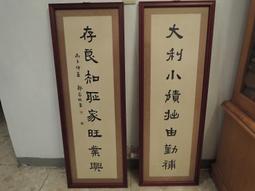 大利小積拙由勤補
存良知恥家旺業興